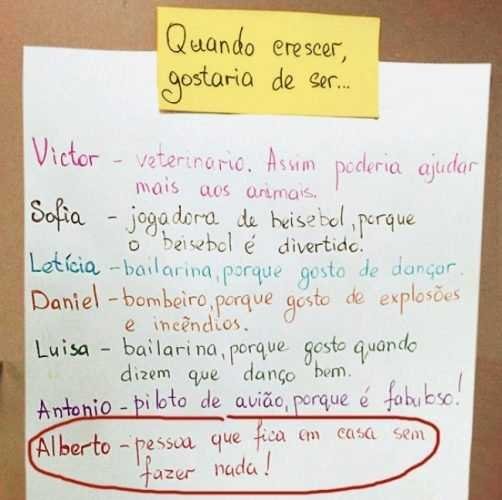 Quando crescer,
gostaria de ser...
Victor - veterinario. Assim poderia ajudar
mais aos animais.
Sofia - jogadora de beisebol, porque
o beisebol é divertido.
Letícia - bailarina, porque gosto de dançar.
Daniel - bombeiro, porque gosto de explosões
e incêndios.
Luisa - bailarina, porque gosto quando
dizem que danço bem.
Antonio - piloto de avião, porque é fabuloso!
Alberto - pessoa que fica em casa sem
fazer nada!